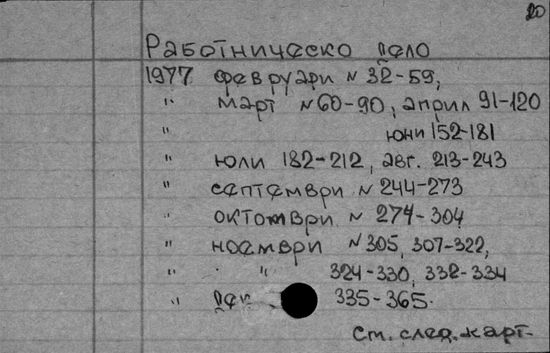 20
Работническо дело
1977 февруари N 32-59,
" март N 60-90, април 91-120
юни 152-181
" юли 182-212, авг. 213-243
" септември N 244-273
" октомври N 274-304
" ноември N 305, 307-322,
" " 324-330, 332-334
" дек 335-365.
См. след. карт.